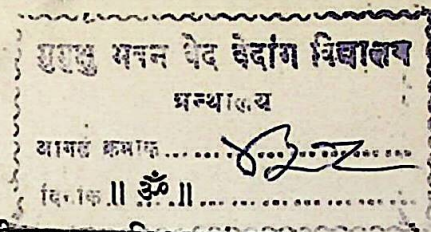 मुमुक्षु भवन वेद वेदांग विद्यालय
ग्रन्थालय
आगत क्रमांक......
दिनांक.॥ ॐ .॥......